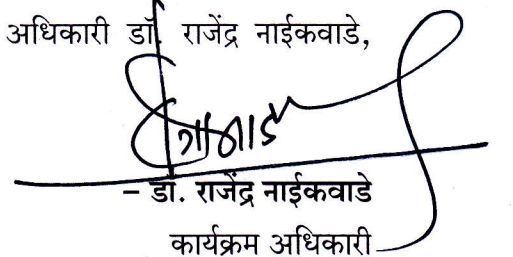 अधिकारी डॉ. राजेंद्र नाईकवाडे,
– डॉ. राजेंद्र नाईकवाडे
कार्यक्रम अधिकारी